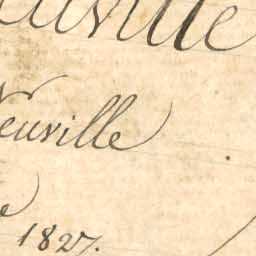 euville
Neuville
e
1827.